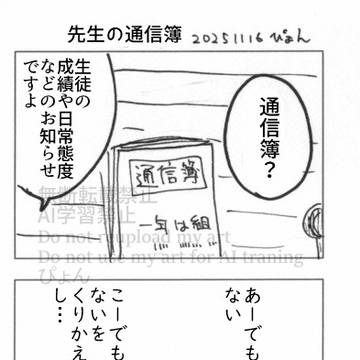 先生の通信簿 20251116 ぴょん
通信簿？
生徒の
成績や日常態度
などのお知らせ
ですよ
通信簿
一年は組
無断転載禁止
AI学習禁止
Do not reupload my art
Do not use my art for AI traning
ぴょん
あーでも
ない
こーでも
ないを
くりかえ
し…